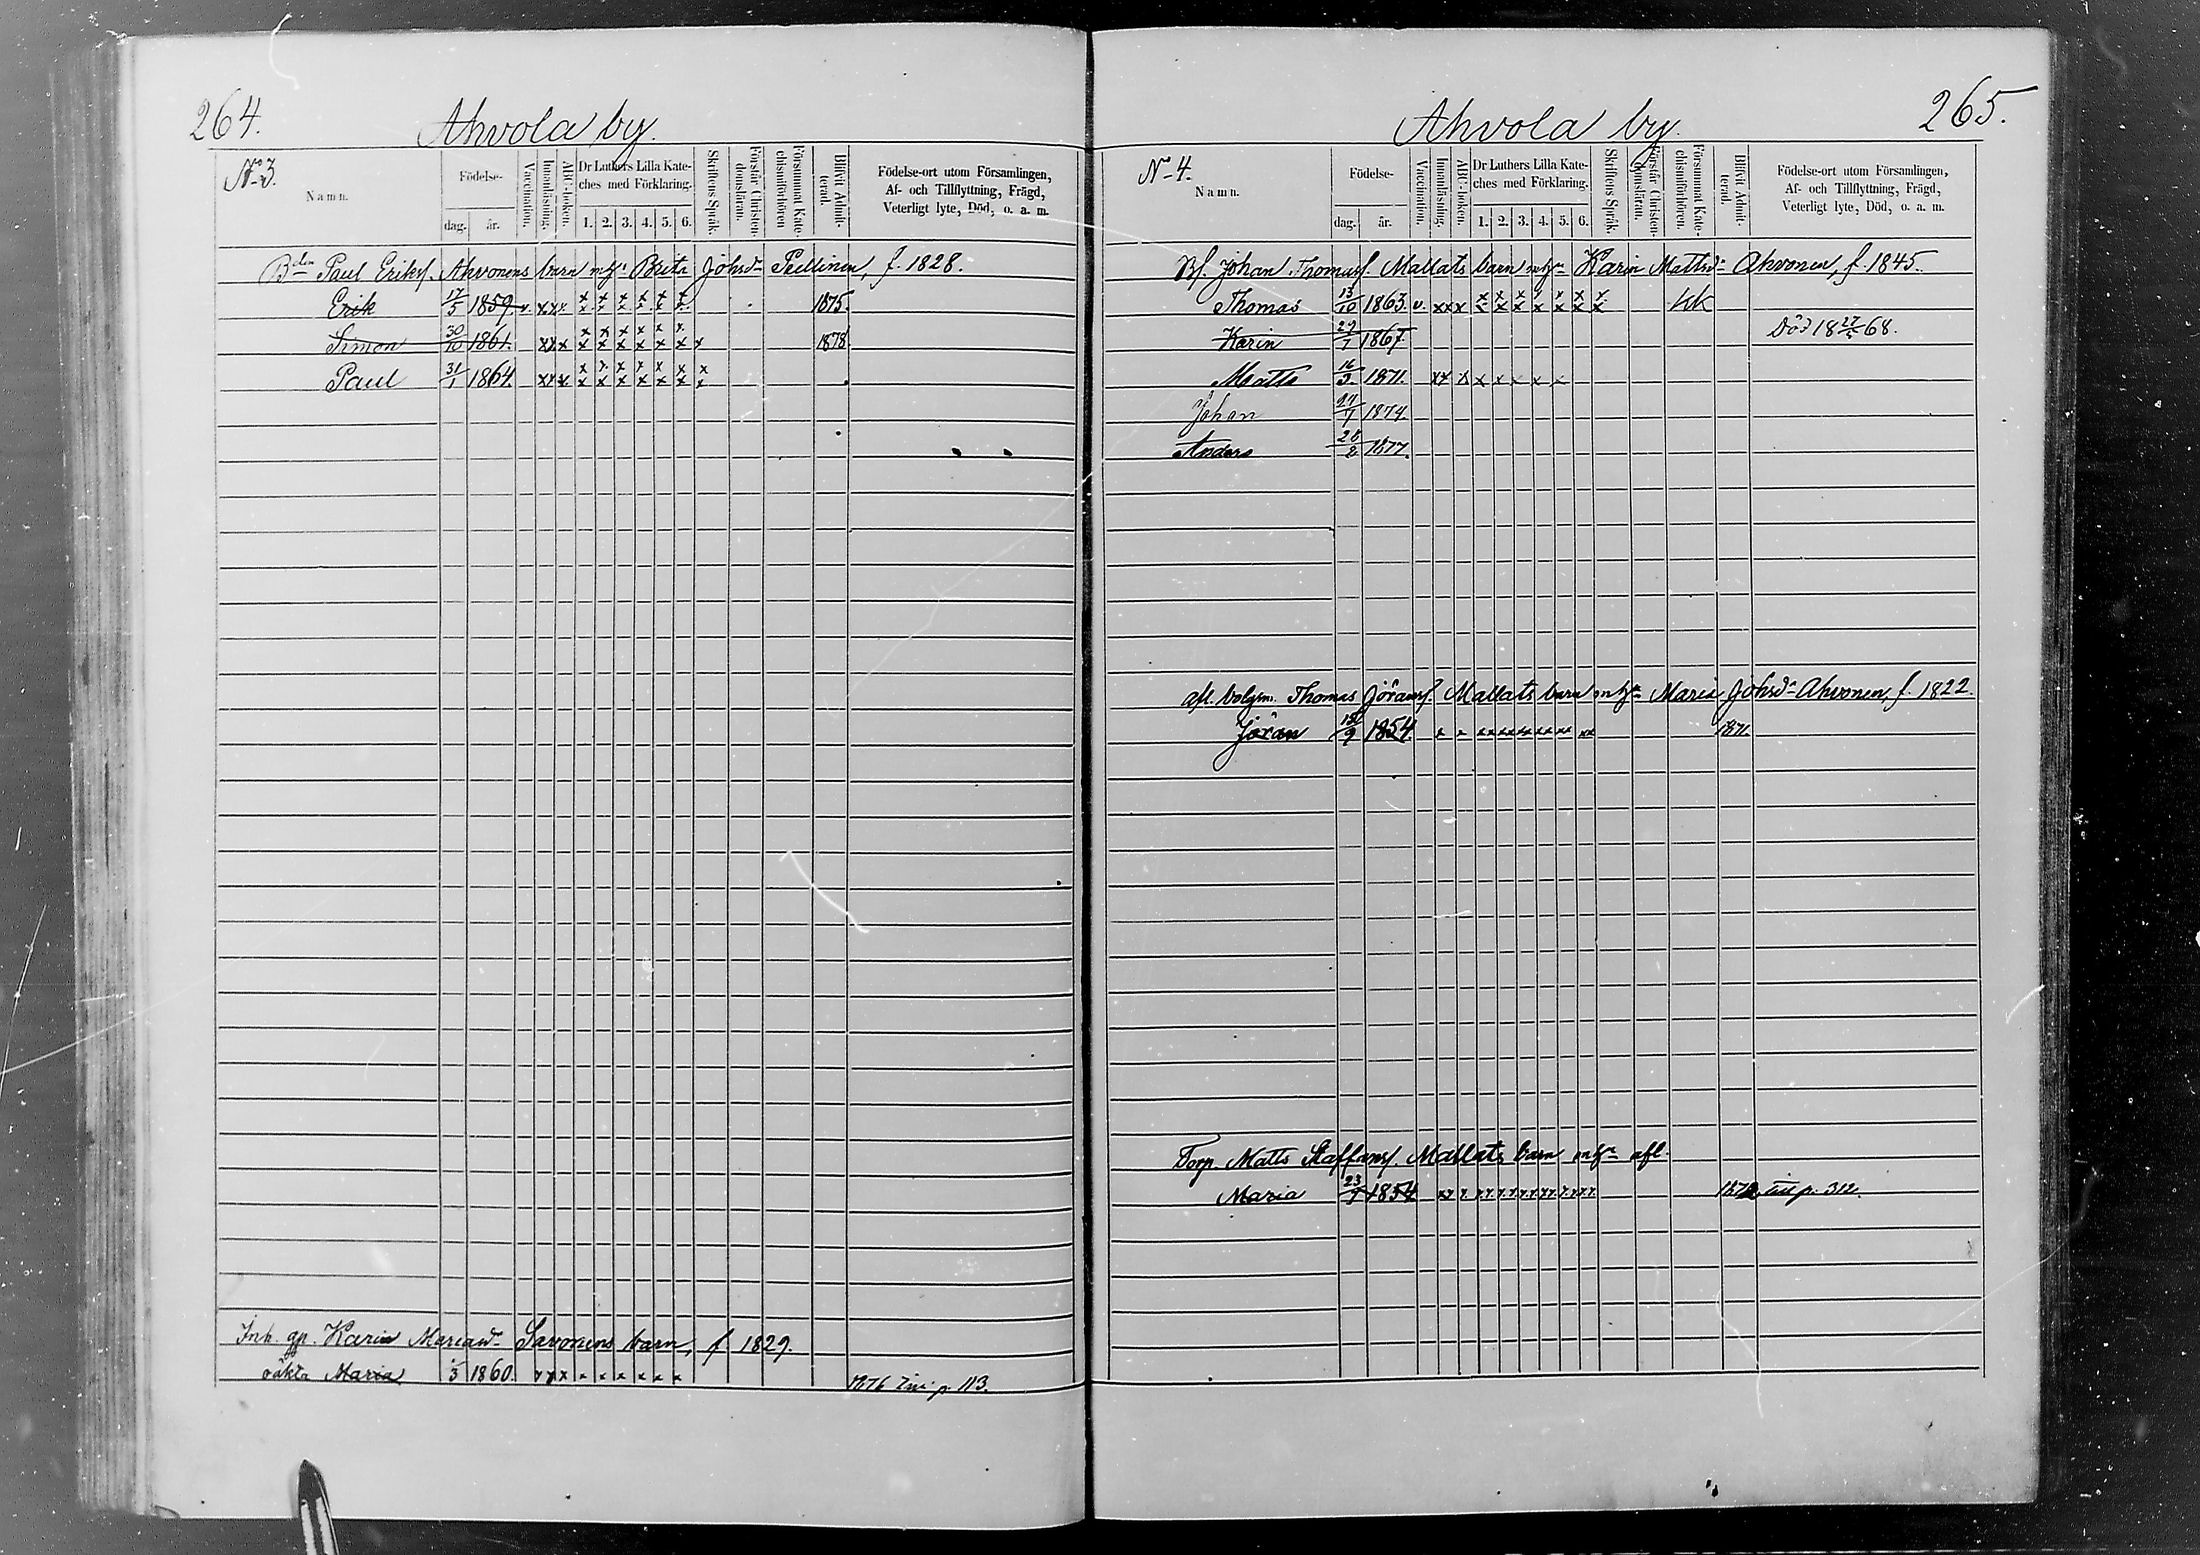 264.
Ahvola by.
No 3.
Namn.
Födelse-
dag.
år.
Vaccination.
Innanläsning.
ABC-boken.
Dr Luthers Lilla Kate-
ches med Förklaring.
1. 2. 3. 4. 5. 6.
Skriftens Språk.
Förstår Christen-
domsläran.
Försummat Kate-
chismiförhören
Blifvit Admit-
terad.
Födelse-ort utom Församlingen,
Af- och Tillflyttning, Frägd,
Veterligt lyte, Död, o. a. m.
Bden Paul Eriksf. Ahvonens barn Brita Johsdr Pellinen, f. 1828.
Erik 17/5 1859. v. x x x x x x x x x 1875.
Simon 30/10 1861. x x x x x x x x x x 1878
Paul 31/1 1864. x x x x x x x x x x
Inh. Karin Savonens barn, f. 1829.
oäkta Maria 1860. x x x x x x x x x 1876 p. 113.
265.
Ahvola by.
No 4.
Namn.
Födelse-
dag.
år.
Vaccination.
Innanläsning.
ABC-boken.
Dr Luthers Lilla Kate-
ches med Förklaring.
1. 2. 3. 4. 5. 6.
Skriftens Språk.
Förstår Christen-
domsläran.
Försummat Kate-
chismiförhören.
Blifvit Admit-
terad.
Födelse-ort utom Församlingen,
Af- och Tillflyttning, Frägd,
Veterligt lyte, Död, o. a. m.
Johan Thomasf. Mallats barn Karin Mattsdr Ahvonen, f. 1845.
Thomas 13/10 1863. v. x x x x x x x x x x
Karin 29/1 1867. Död 18 68.
Matts 16/3 1871. x x x x x x x x
Johan 24/1 1874.
Anders 28/2 1877.
afl. Thomas Jöransf. Mallats barn Maria Johsdr Ahvonen, f. 1822.
Jöran 18/9 1854. x x xx xx xx xx xx xx 1871.
Torp. Matts Staffansf. Mallats barn afl.
Maria 1854 x x xx xx xx xx xx xx p. 312.